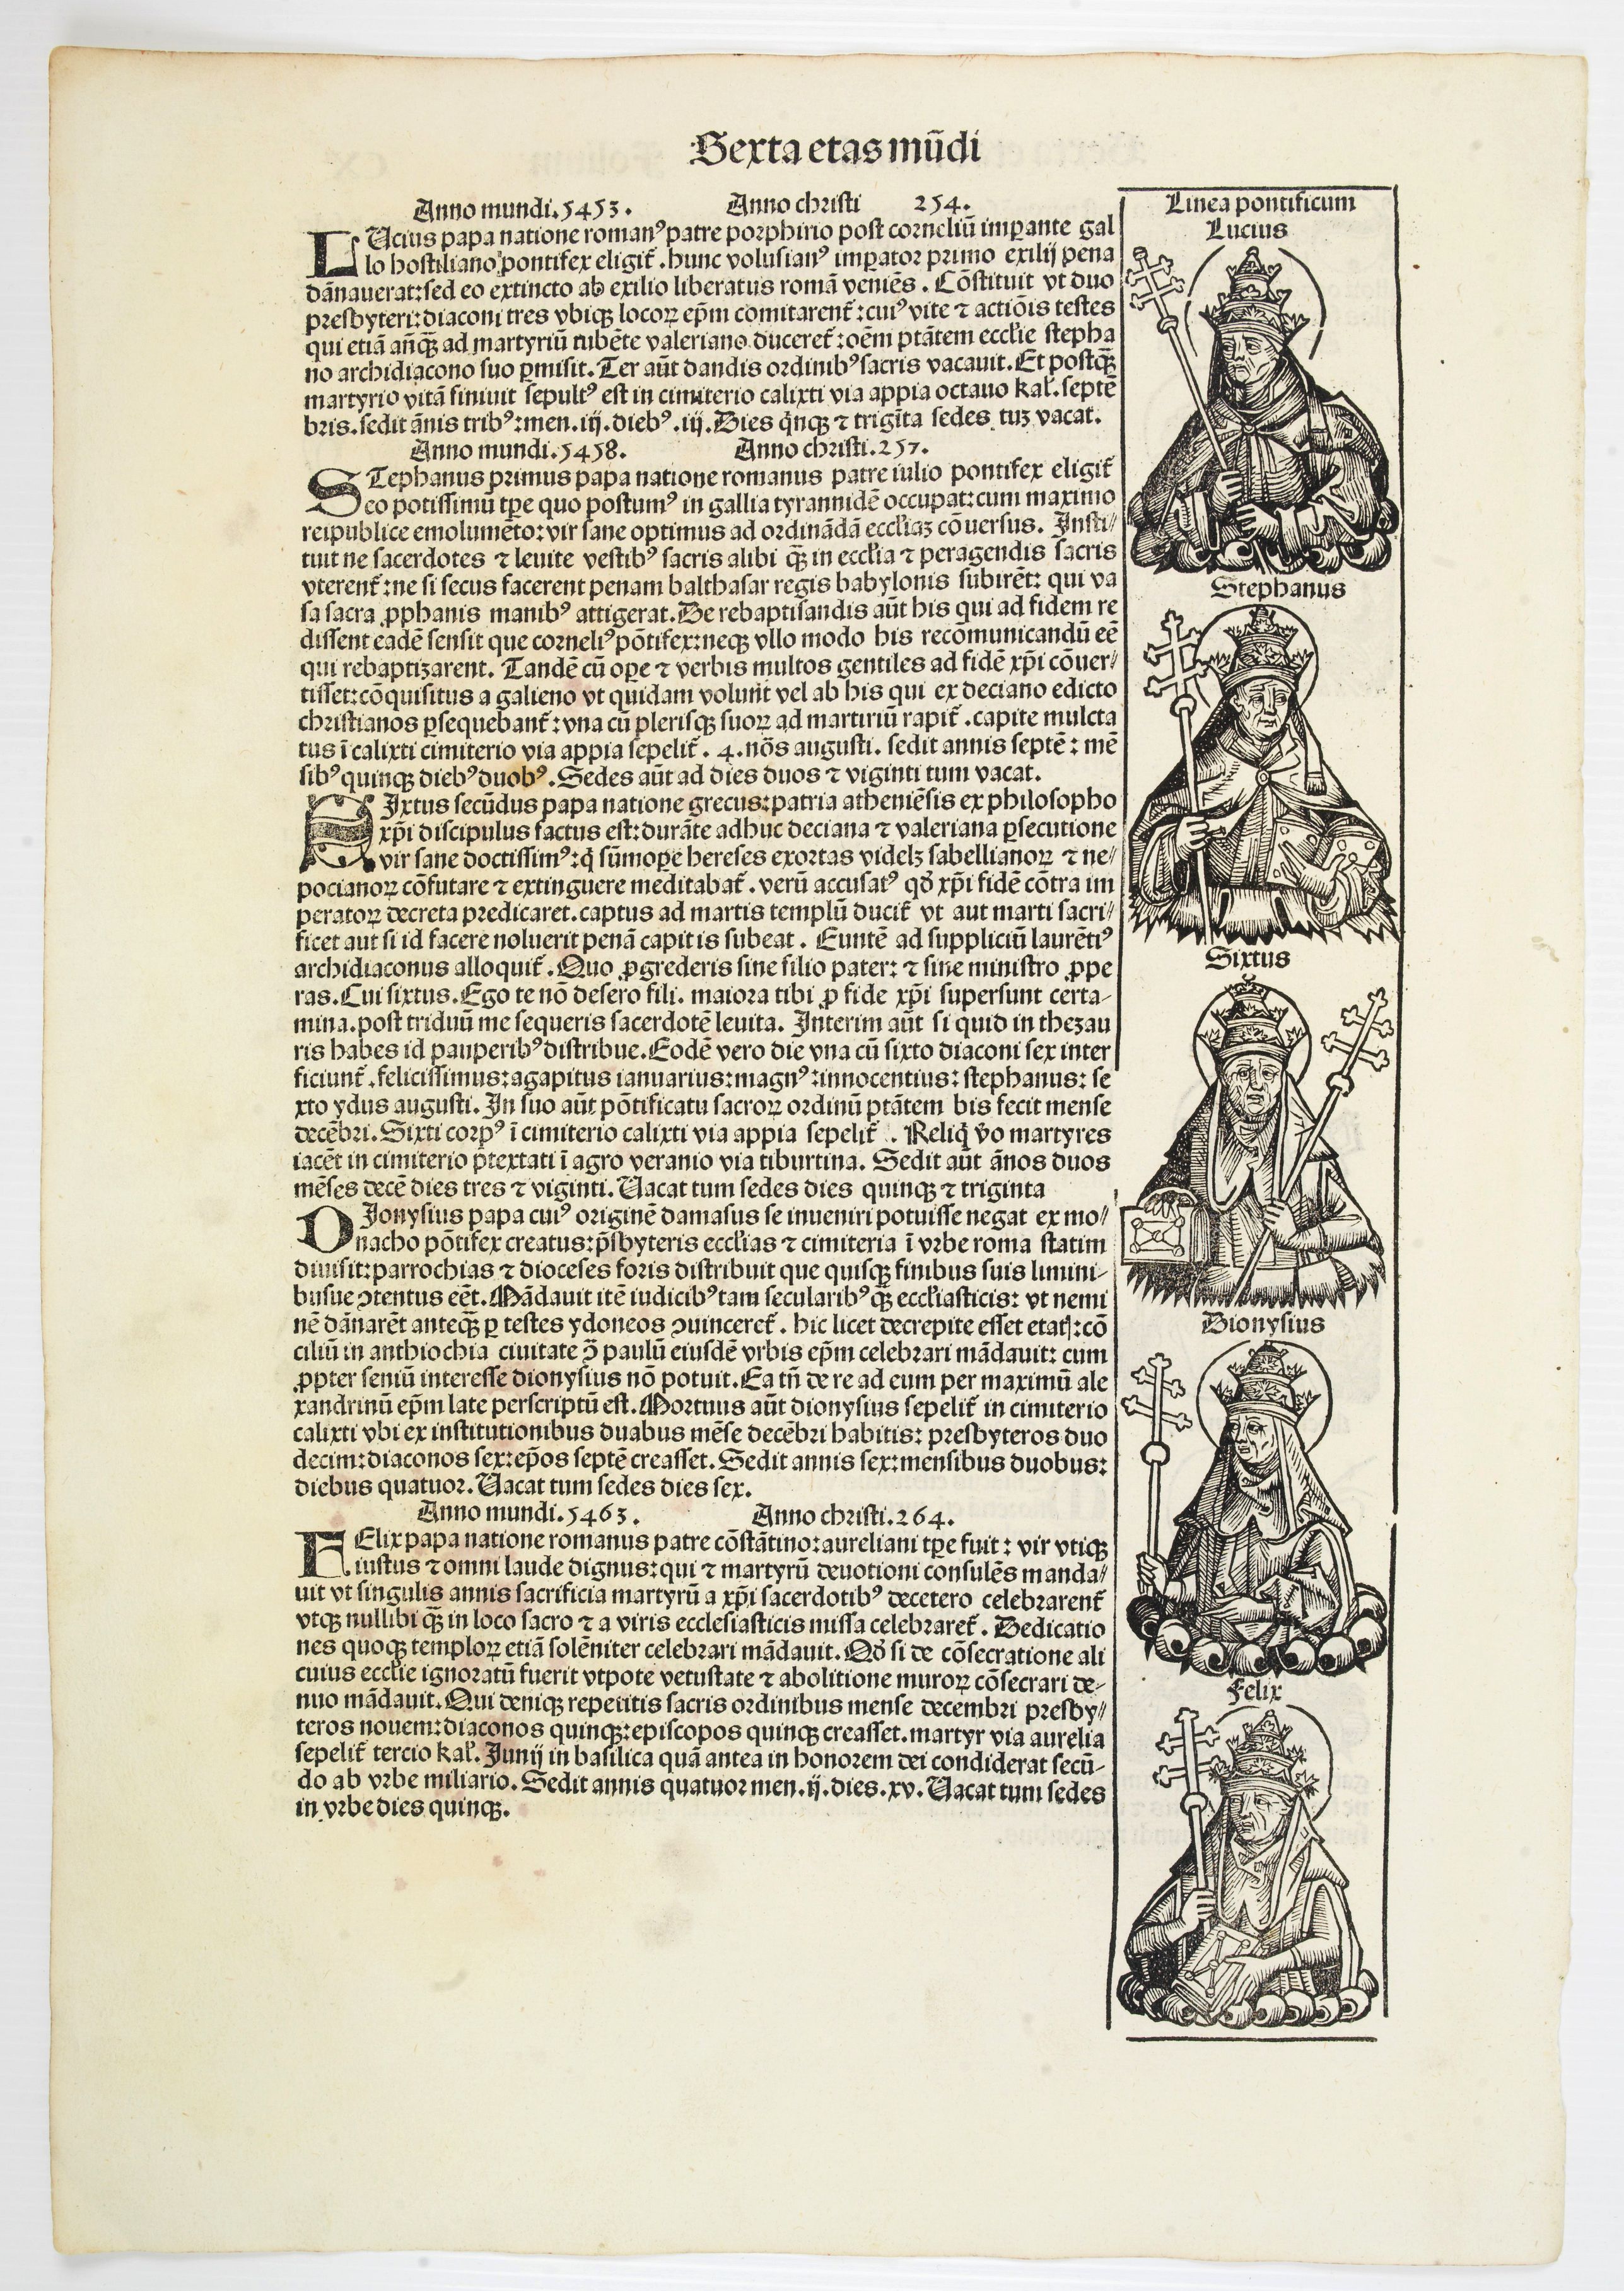 Sexta etas mũdi
Anno mundi.5453. Anno christi 254.
LUcius papa natione romanꝰ patre porphirio post corneliũ imꝑante gal
lo hostiliano pontifex eligit̃. hunc volusianꝰ imꝑator primo exilij pena
dãnauerat:sed eo extincto ab exilio liberatus romã veniẽs. Cõstituit vt duo
presbyteri:diaconi tres vbiqꝫ locoꝝ ep̃m comitarent̃:cuiꝰ vite ⁊ actiõis testes
qui etiã añqꝫ̃ ad martyriũ iubẽte valeriano duceret̃:oẽm ptãtem eccl'ie stepha
no archidiacono suo ꝑmisit. Ter aũt dandis ordinibꝰ sacris vacauit. Et postqꝫ̃
martyrio vitã finiuit sepultꝰ est in cimiterio calixti via appia octauo kal'. septẽ
bris. sedit ãnis tribꝰ:men. iij. diebꝰ. iij. Dies q̇nqꝫ ⁊ trigĩta sedes tuꝫ vacat.
Anno mundi.5458. Anno christi.257.
STephanus primus papa natione romanus patre iulio pontifex eligit̃
eo potissimũ tꝑe quo postumꝰ in gallia tyrannidẽ occupat:cum maximo
reipublice emolumẽto:vir sane optimus ad ordinãdã eccl'iaꝫ cõuersus. Insti⸗
tuit ne sacerdotes ⁊ leuite vestibꝰ sacris alibi qꝫ̃ in eccl'ia ⁊ peragendis sacris
vterent̃:ne si secus facerent penam balthasar regis babylonis subirẽt: qui va
sa sacra ꝓphanis manibꝰ attigerat. De rebaptisandis aũt his qui ad fidem re
dissent eadẽ sensit que corneliꝰ põtifex:neqꝫ vllo modo his recõmunicandũ eẽ
qui rebaptizarent. Tandẽ cũ oꝑe ⁊ verbis multos gentiles ad fidẽ xp̃i cõuer⸗
tisset:cõquisitus a galieno vt quidam volunt vel ab his qui ex deciano edicto
christianos ꝑsequebant̃:vna cũ plerisqꝫ suoꝝ ad martiriũ rapit̃. capite mulcta
tus ĩ calixti cimiterio via appia sepelit̃. 4. nõs augusti. sedit annis septẽ: mẽ
sibꝰ quinqꝫ diebꝰ duobꝰ. Sedes aũt ad dies duos ⁊ viginti tum vacat.
SIxtus secũdus papa natione grecus:patria atheniẽsis ex philosopho
xp̃i discipulus factus est:durãte adhuc deciana ⁊ valeriana ꝑsecutione
vir sane doctissimꝰ:q̇ sũmoꝑe hereses exortas videlꝫ sabellianoꝝ ⁊ ne⸗
pocianoꝝ cõfutare ⁊ extinguere meditabat̃. verũ accusatꝰ qđ xp̃i fidẽ cõtra im
peratoꝝ decreta predicaret. captus ad martis templũ ducit̃ vt aut marti sacri⸗
ficet aut si id facere noluerit penã capitis subeat. Euntẽ ad suppliciũ laurẽtiꝰ
archidiaconus alloquit̃. Quo ꝓgrederis sine filio pater: ⁊ sine ministro ꝓpe
ras. Cui sixtus. Ego te nõ desero fili. maiora tibi ꝓ fide xp̃i supersunt certa⸗
mina. post triduũ me sequeris sacerdotẽ leuita. Interim aũt si quid in thezau
ris habes id pauperibꝰ distribue. Eodẽ vero die vna cũ sixto diaconi sex inter
ficiunt̃. felicissimus:agapitus ianuarius:magnꝰ:innocentius:stephanus: se
xto ydus augusti. In suo aũt põtificatu sacroꝝ ordinũ ptãtem bis fecit mense
decẽbri. Sixti corpꝰ ĩ cimiterio calixti via appia sepelit̃. Reliq̇ ṽo martyres
iacẽt in cimiterio p̃textati ĩ agro veranio via tiburtina. Sedit aũt ãnos duos
mẽses decẽ dies tres ⁊ viginti. Uacat tum sedes dies quinqꝫ ⁊ triginta
DIonysius papa cuiꝰ originẽ damasus se inueniri potuisse negat ex mo⸗
nacho põtifex creatus:p̃sbyteris eccl'ias ⁊ cimiteria ĩ vrbe roma statim
diuisit:parrochias ⁊ dioceses foris distribuit que quisqꝫ finibus suis limini⸗
busue ꝯtentus eẽt. Mãdauit itẽ iudicibꝰ tam secularibꝰ qꝫ̃ eccl'iasticis: vt nemi
nẽ dãnarẽt anteqꝫ̃ ꝑ testes ydoneos ꝯuinceret̃. hic licet decrepite esset etatꝭ:cõ
ciliũ in anthiochia ciuitate ꝯ̃ paulũ eiusdẽ vrbis ep̃m celebrari mãdauit: cum
ꝓpter seniũ interesse dionysius nõ potuit. Ea tñ de re ad eum per maximũ ale
xandrinũ ep̃m late perscriptũ est. Mortuus aũt dionysius sepelit̃ in cimiterio
calixti vbi ex institutionibus duabus mẽse decẽbri habitis: presbyteros duo
decim:diaconos sex:ep̃os septẽ creasset. Sedit annis sex:mensibus duobus:
diebus quatuor. Uacat tum sedes dies sex.
Anno mundi.5463. Anno christi.264.
FElix papa natione romanus patre cõstãtino:aureliani tꝑe fuit: vir vtiqꝫ
iustus ⁊ omni laude dignus:qui ⁊ martyrũ deuotioni consulẽs manda⸗
uit vt singulis annis sacrificia martyrũ a xp̃i sacerdotibꝰ decetero celebrarent̃
vtqꝫ nullibi qꝫ̃ in loco sacro ⁊ a viris ecclesiasticis missa celebraret̃. Dedicatio
nes quoqꝫ temploꝝ etiã solẽniter celebrari mãdauit. Qđ si de cõsecratione ali
cuius eccl'ie ignoratũ fuerit vtpote vetustate ⁊ abolitione muroꝝ cõsecrari de⸗
nuo mãdauit. Qui deniqꝫ repetitis sacris ordinibus mense decembri presby⸗
teros nouem:diaconos quinqꝫ:episcopos quinqꝫ creasset. martyr via aurelia
sepelit̃ tercio kal'. Junij in basilica quã antea in honorem dei condiderat secũ⸗
do ab vrbe miliario. Sedit annis quatuor men. ij. dies. xv. Uacat tum sedes
in vrbe dies quinqꝫ.
Linea pontificum
Lucius
Stephanus
Sixtus
Dionysius
Felix